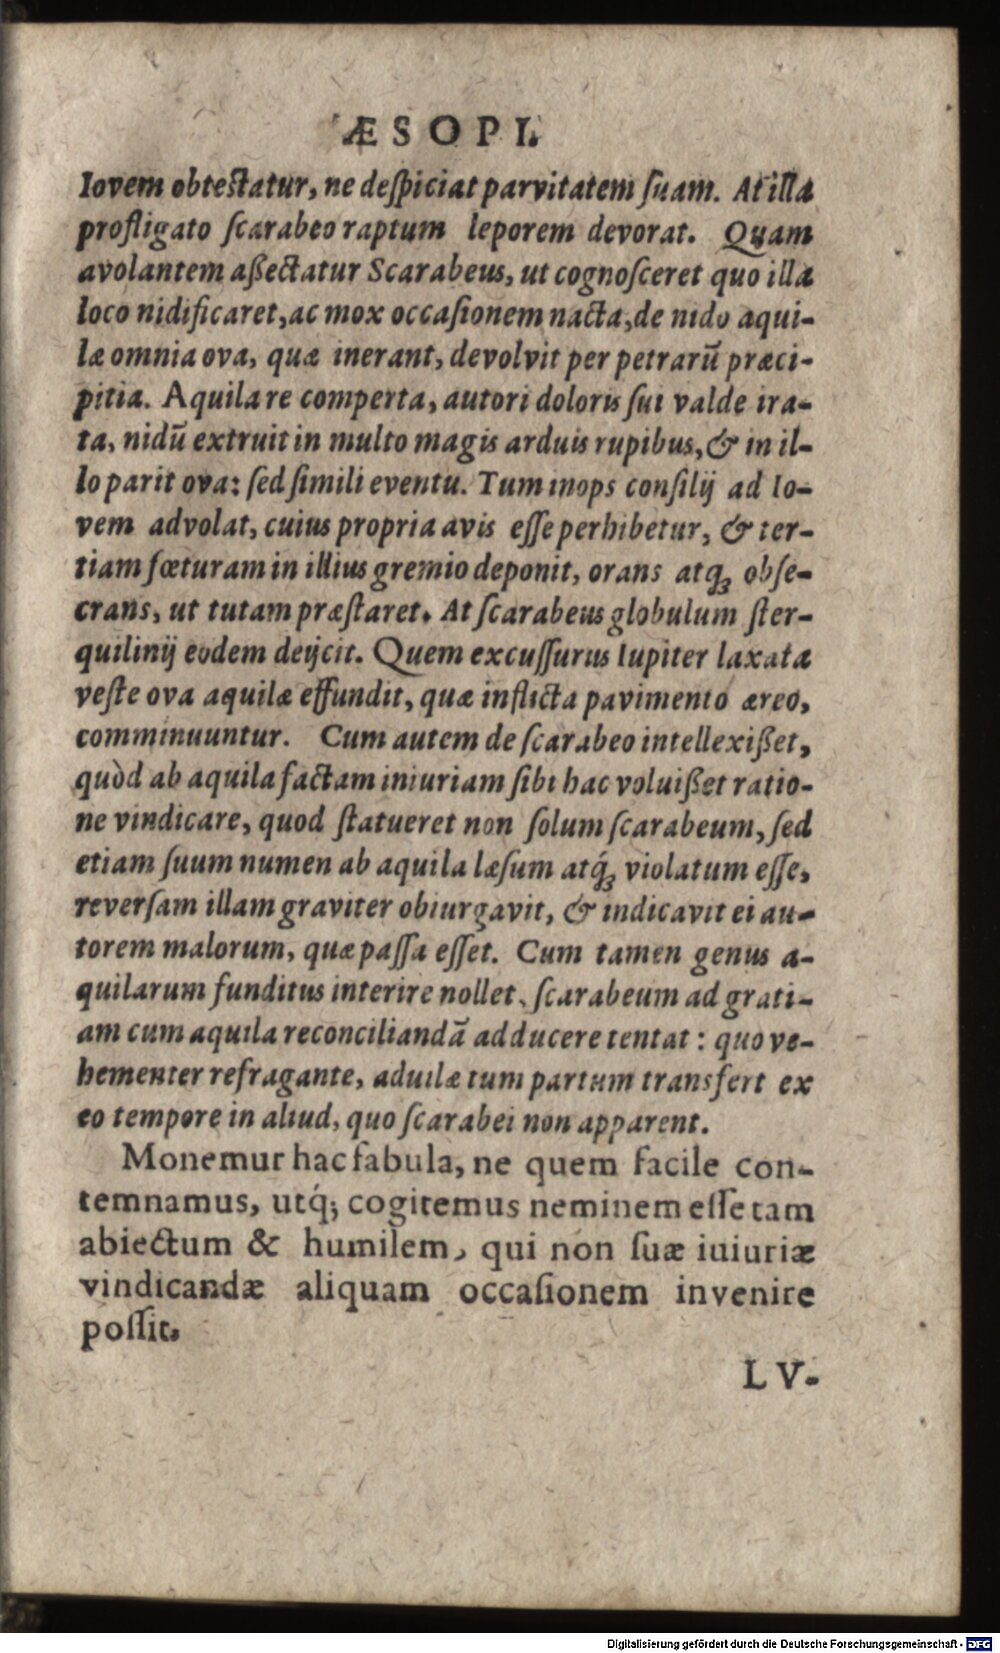 ÆSOPI.
Iovem obtestatur, ne despiciat parvitatem suam. At illa
profligato scarabeo raptum leporem devorat. Quam
avolantem aßectatur Scarabeus, ut cognosceret quo illa
loco nidificaret, ac mox occasionem nacta, de nido aqui-
læ omnia ova, quæ inerant, devolvit per petrarū præci-
pitia. Aquila re comperta, autori doloris sui valde ira-
ta, nidū extruit in multo magis arduis rupibus, & in il-
lo parit ova: sed simili eventu. Tum inops consilij ad Io-
vem advolat, cuius propria avis esse perhibetur, & ter-
tiam fœturam in illius gremio deponit, orans atq́ꝫ obse-
crans, ut tutam præstaret. At scarabeus globulum ster-
quilinij eodem deijcit. Quem excussurus Iupiter laxata
veste ova aquilæ effundit, quæ inflicta pavimento æreo,
comminuuntur. Cum autem de scarabeo intellexißet,
quòd ab aquila factam iniuriam sibi hac voluißet ratio-
ne vindicare, quod statueret non solum scarabeum, sed
etiam suum numen ab aquila læsum atq́ꝫ violatum esse,
reversam illam graviter obiurgavit, & indicavit ei au-
torem malorum, quæ passa esset. Cum tamen genus a-
quilarum funditus interire nollet, scarabeum ad grati-
am cum aquila reconciliandā adducere tentat: quo ve-
hementer refragante, aduilæ tum partum transfert ex
eo tempore in aliud, quo scarabei non apparent.
Monemur hac fabula, ne quem facile con-
temnamus, utq́; cogitemus neminem esse tam
abiectum & humilem, qui non suæ iuiuriæ
vindicandæ aliquam occasionem invenire
possit.
LV-
Digitalisierung gefördert durch die Deutsche Forschungsgemeinschaft - DFG